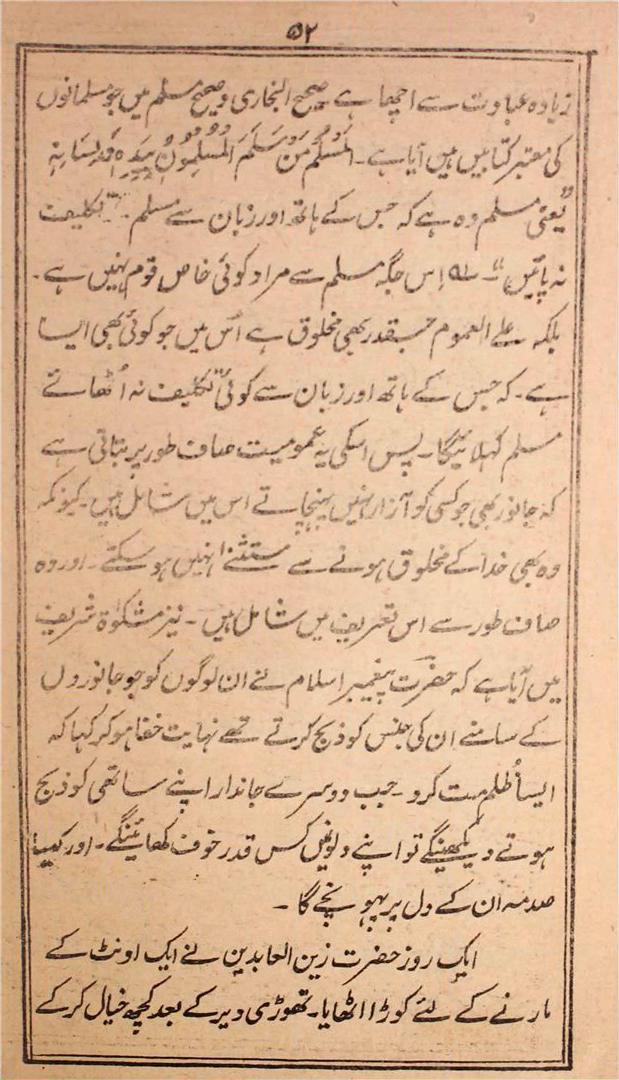 ۵۲
زیادہ عبادت سے اچھا ہے صحیح البخاری و صحیح مسلم میں جو مسلمانوں
کی معتبر کتابیں ہیں آیا ہے۔ اَلْمُسْلِمُ مَنْ سَلِمَ الْمُسْلِمُوْنَ
”یعنی مسلم وہ ہے کہ جس کے ہاتھ اور زبان سے مسلم تکلیف
نہ پائیں“۔ اِس جگہ مسلم سے مراد کوئی خاص قوم نہیں ہے۔
بلکہ علے العموم جسقدر بھی مخلوق ہے اُس میں جو کوئی بھی ایسا
ہے۔ کہ جس کے ہاتھ اور زبان سے کوئی تکلیف نہ اُٹھائے
مسلم کہلائیگا۔ پس اسکی یہ عمومیت صاف طور پر بتاتی ہے
کہ جانور بھی جو کسی کو آزار نہیں پہنچاتے اس میں شامل ہیں۔ کیونکہ
وہ بھی خدا کے مخلوق ہونے سے مستثنےٰ نہیں ہو سکتے۔ اور وہ
صاف طور سے اس تعریف میں شامل ہیں۔ نیز مشکوٰۃ شریف
میں آیا ہے کہ حضرت پیغمبر اسلام نے ان لوگوں کو جو جانوروں
کے سامنے اِن کی جنس کو ذبح کرتے تھے نہایت خفا ہو کر کہا کہ
ایسا ظلم مت کرو۔ جب دوسرے جاندار اپنے ساتھی کو ذبح
ہوتے دیکھینگے تو اپنے دلونمیں کس قدر خوف کھائینگے۔ اور کیسا
صدمہ ان کے دل پر پہونچے گا۔
ایک روز حضرت زین العابدین نے ایک اونٹ کے
مارنے کے لئے کوڑا اٹھایا۔ تھوڑی دیر کے بعد کچھ خیال کر کے